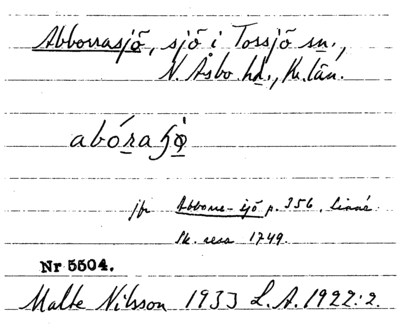 Abborrasjö, sjö i Tossjö sn.,
N. Åsbo hd., Kr. län.
abóraʃö̀
jfr Abborre-sjö p. 356, Linné
Sk. resa 1749.
Nr 5504.
Malte Nilsson 1933 L.A. 1922:2.